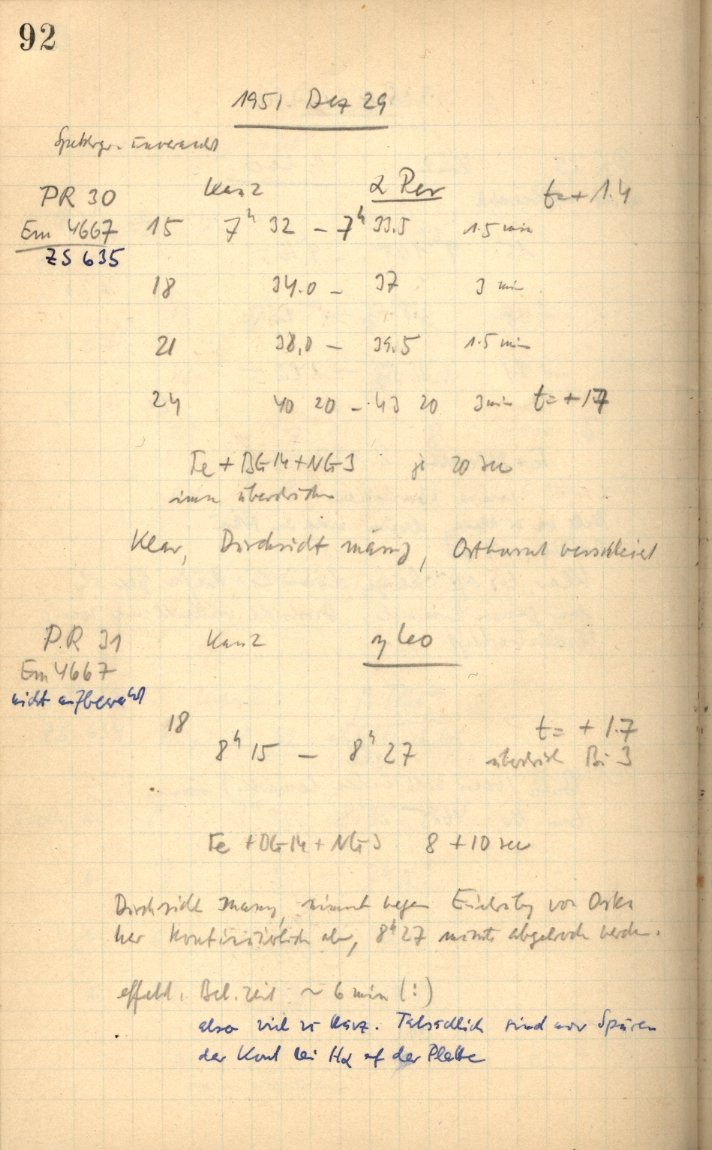 92
1951 Dez 29
unverändert
PR 30 Kam 2 α Per t = + 1.4
Em 4667 15 7h 32 – 7h 33.5 1.5 min
ZS 635
18 34.0 – 37 3 min
21 38.0 – 39.5 1.5 min
24 40 20 – 43 20 3 min t = + 1.7
Fe + BG 14 + NG 3 je 20 sec
Klar, Durchsicht mässig, verschleiert
PR 31 Kam 2 η Leo
Em 4667
nicht aufbewahrt
18 t = + 1.7
8h 15 – 8h 27
Fe + BG 14 + NG 3 8 + 10 sec
Durchsicht mässig, nimmt wegen von Osten
her kontinuierlich ab, 8h 27 musste abgebrochen werden.
effekt. Bel. zeit ~ 6 min (!)
also viel zu kurz. Tatsächlich sind nur Spuren
der Kont bei Hα auf der Platte